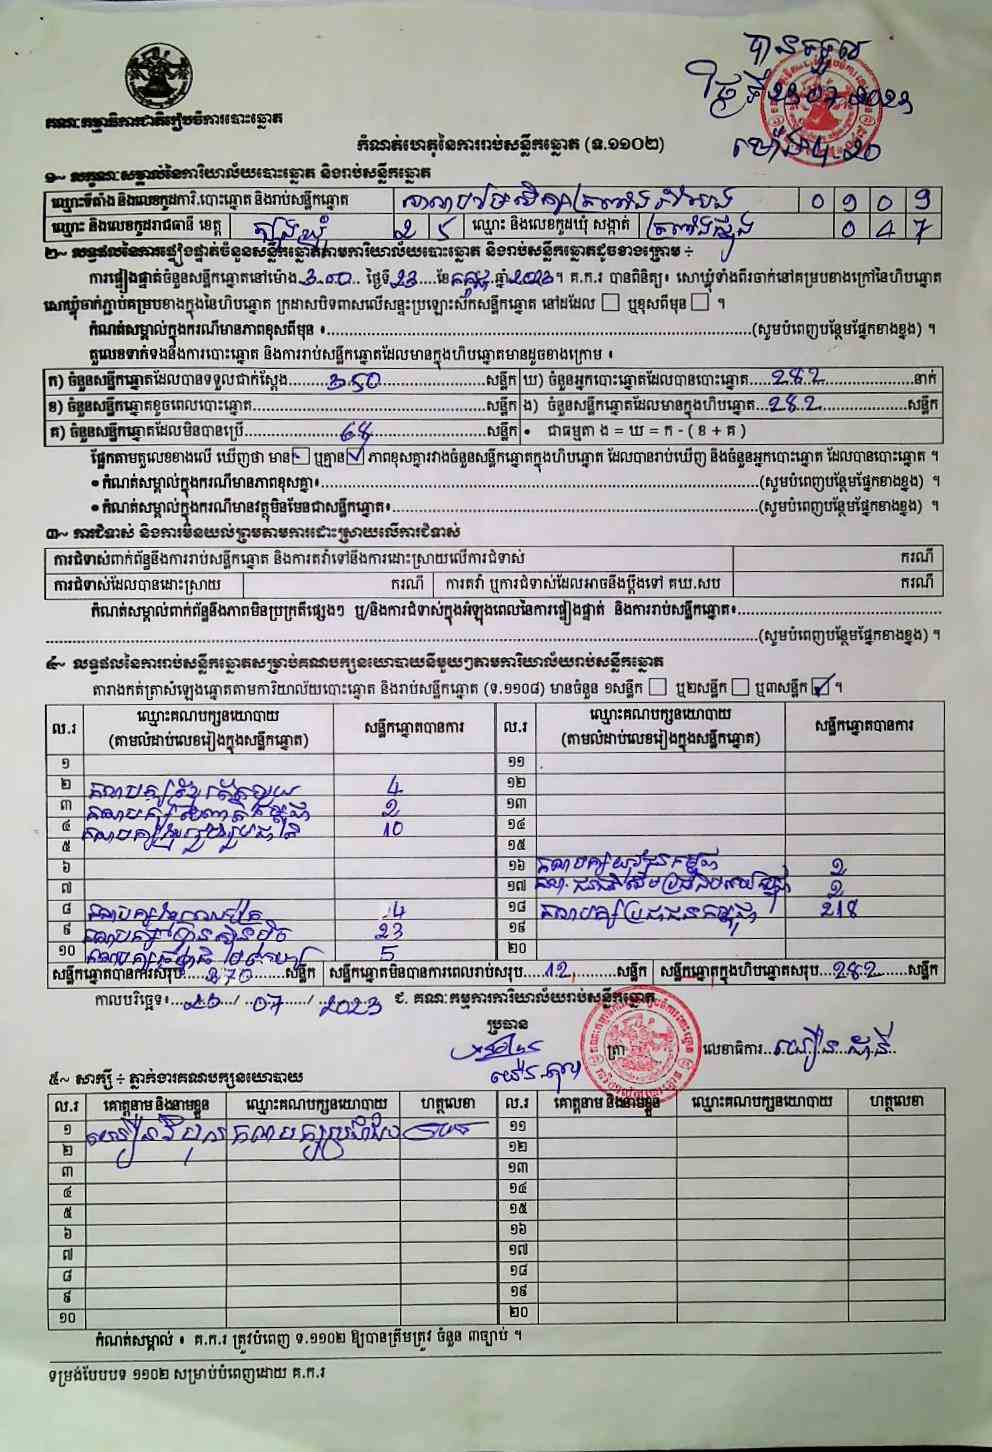 បានទទួល
ថ្ងៃទី23.07.2023
ម៉ោង4.20
គណៈកម្មាធិការជាតិរៀបចំការបោះឆ្នោត
កំណត់ហេតុនៃការរាប់សន្លឹកឆ្នោត (ទ.១១០២)
១~ លក្ខណៈសម្គាល់នៃការិយាល័យបោះឆ្នោត និងរាប់សន្លឹកឆ្នោត
ឈ្មោះទីតាំង និងលេខកូដការិ.បោះឆ្នោត និងរាប់សន្លឹកឆ្នោត 0909
ឈ្មោះ និងលេខកូដរាជធានី ខេត្ត ត្បូងឃ្មុំ 25 ឈ្មោះ និងលេខកូដឃុំ សង្កាត់ 047
២~ លទ្ធផលនៃការផ្ទៀងផ្ទាត់ចំនួនសន្លឹកឆ្នោតតាមការិយាល័យបោះឆ្នោត និងរាប់សន្លឹកឆ្នោតដូចខាងក្រោម ÷
ការផ្ទៀងផ្ទាត់ចំនួនសន្លឹកឆ្នោតនៅម៉ោង 3.00 ថ្ងៃទី 23 ខែ កក្កដា ឆ្នាំ 2023 ។ គ.ក.រ បានពិនិត្យ៖ សោឃ្លុំទាំងពីរចាក់នៅគម្របខាងក្រៅនៃហិបឆ្នោត
សោឃ្លុំចាក់ភ្ជាប់គម្របខាងក្នុងនៃហិបឆ្នោត ក្រដាសបិទពាសលើសន្ទះប្រឡោះស៊កសន្លឹកឆ្នោត នៅដដែល ☐ ឬខុសពីមុន ☐ ។
កំណត់សម្គាល់ក្នុងករណីមានភាពខុសពីមុន ៖ (សូមបំពេញបន្ថែមផ្នែកខាងខ្នង) ។
តួលេខទាក់ទងនឹងការបោះឆ្នោត និងការរាប់សន្លឹកឆ្នោតដែលមានក្នុងហិបឆ្នោតមានដូចខាងក្រោម ៖
ក) ចំនួនសន្លឹកឆ្នោតដែលបានទទួលជាក់ស្តែង 350 សន្លឹក ឃ) ចំនួនអ្នកបោះឆ្នោតដែលបានបោះឆ្នោត 282 នាក់
ខ) ចំនួនសន្លឹកឆ្នោតខូចពេលបោះឆ្នោត សន្លឹក ង) ចំនួនសន្លឹកឆ្នោតដែលមានក្នុងហិបឆ្នោត 282 សន្លឹក
គ) ចំនួនសន្លឹកឆ្នោតដែលមិនបានប្រើ 68 សន្លឹក • ជាធម្មតា ង = ឃ = ក - ( ខ + គ )
ផ្អែកតាមតួលេខខាងលើ ឃើញថា មាន ☐ ឬគ្មាន ☑ ភាពខុសគ្នារវាងចំនួនសន្លឹកឆ្នោតក្នុងហិបឆ្នោត ដែលបានរាប់ឃើញ និងចំនួនអ្នកបោះឆ្នោត ដែលបានបោះឆ្នោត ។
• កំណត់សម្គាល់ក្នុងករណីមានភាពខុសគ្នា៖ (សូមបំពេញបន្ថែមផ្នែកខាងខ្នង) ។
• កំណត់សម្គាល់ក្នុងករណីមានវត្ថុមិនមែនជាសន្លឹកឆ្នោត៖ (សូមបំពេញបន្ថែមផ្នែកខាងខ្នង) ។
៣~ ការជំទាស់ និងការមិនយល់ព្រមតាមការដោះស្រាយលើការជំទាស់
ការជំទាស់ពាក់ព័ន្ធនឹងការរាប់សន្លឹកឆ្នោត និងការតវ៉ាទៅនឹងការដោះស្រាយលើការជំទាស់ ករណី
ការជំទាស់ដែលបានដោះស្រាយ ករណី ការតវ៉ា ឬការជំទាស់ដែលអាចនឹងប្តឹងទៅ គឃ.សប ករណី
កំណត់សម្គាល់ពាក់ព័ន្ធនឹងភាពមិនប្រក្រតីផ្សេងៗ ឬ/និងការជំទាស់ក្នុងអំឡុងពេលនៃការផ្ទៀងផ្ទាត់ និងការរាប់សន្លឹកឆ្នោត៖
(សូមបំពេញបន្ថែមផ្នែកខាងខ្នង) ។
៤~ លទ្ធផលនៃការរាប់សន្លឹកឆ្នោតសម្រាប់គណបក្សនយោបាយនីមួយៗតាមការិយាល័យរាប់សន្លឹកឆ្នោត
តារាងកត់ត្រាសំឡេងឆ្នោតតាមការិយាល័យបោះឆ្នោត និងរាប់សន្លឹកឆ្នោត (ទ.១១០៨) មានចំនួន ១សន្លឹក ☐ ឬ២សន្លឹក ☐ ឬ៣សន្លឹក ☑ ។
ល.រ ឈ្មោះគណបក្សនយោបាយ (តាមលំដាប់លេខរៀងក្នុងសន្លឹកឆ្នោត) សន្លឹកឆ្នោតបានការ ល.រ ឈ្មោះគណបក្សនយោបាយ (តាមលំដាប់លេខរៀងក្នុងសន្លឹកឆ្នោត) សន្លឹកឆ្នោតបានការ
១ ១១
២ 4 ១២
៣ 2 ១៣
៤ 10 ១៤
៥ ១៥
៦ ១៦ គណបក្សយុវជនកម្ពុជា
៧ ១៧
៨ 4 ១៨ គណបក្សប្រជាជនកម្ពុជា 218
៩ 23 ១៩
១០ 5 ២០
សន្លឹកឆ្នោតបានការសរុប 270 សន្លឹក សន្លឹកឆ្នោតមិនបានការពេលរាប់សរុប 12 សន្លឹក សន្លឹកឆ្នោតក្នុងហិបឆ្នោតសរុប 282 សន្លឹក
កាលបរិច្ឆេទ៖ 23 / 07 / 2023 ជ. គណៈកម្មការការិយាល័យរាប់សន្លឹកឆ្នោត
ប្រធាន
ត្រា លេខាធិការ
៥~ សាក្សី ÷ ភ្នាក់ងារគណបក្សនយោបាយ
ល.រ គោត្តនាម និងនាមខ្លួន ឈ្មោះគណបក្សនយោបាយ ហត្ថលេខា ល.រ គោត្តនាម និងនាមខ្លួន ឈ្មោះគណបក្សនយោបាយ ហត្ថលេខា
១ ១១
២ ១២
៣ ១៣
៤ ១៤
៥ ១៥
៦ ១៦
៧ ១៧
៨ ១៨
៩ ១៩
១០ ២០
កំណត់សម្គាល់ ៖ គ.ក.រ ត្រូវបំពេញ ទ.១១០២ ឱ្យបានត្រឹមត្រូវ ចំនួន ៣ច្បាប់ ។
ទម្រង់បែបបទ ១១០២ សម្រាប់បំពេញដោយ គ.ក.រ